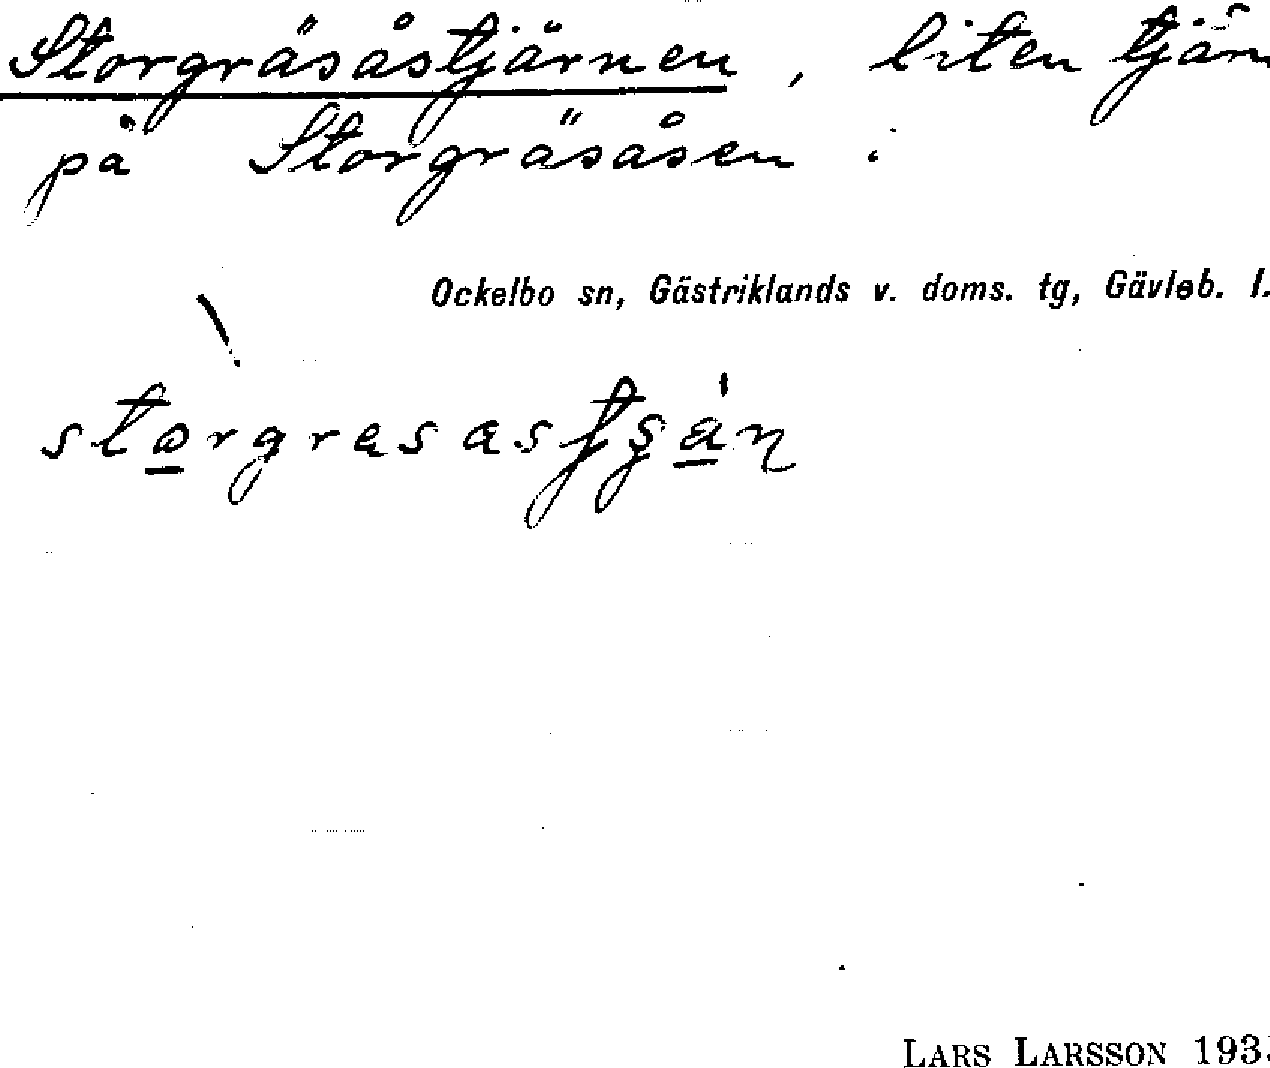 Storgräsåstjärnen, liten tjärn
på Storgräsåsen.
Ockelbo sn, Gästriklands v. doms. tg, Gävleb. l.
LARS LARSSON 193